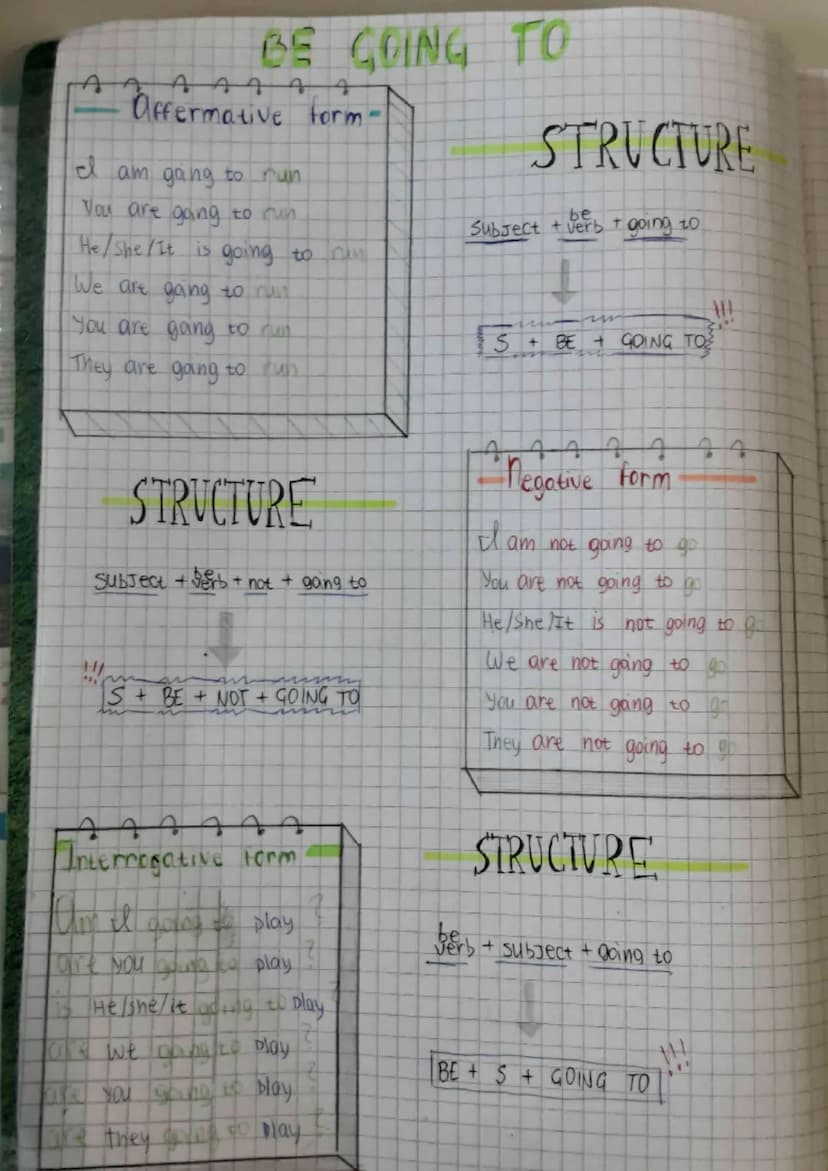 BE GOING TO
Affermative form
I am gang to run
You are gang to run
He/She/It is going to run
We are going to run
You are gang to run
They are gang to run
STRUCTURE
be
subject + verb + going to
!!!
S + BE + GOING TO
STRUCTURE
be
subject + verb + not + gang to
!!!
S + BE + NOT + GOING TO
Negative form
I am not going to go
You are not going to go
He/She/It is not going to go
We are not going to go
You are not gang to go
They are not going to go
Interrogative form
Am I going to play ?
are you going to play ?
is He/she/it going to play ?
are we going to play ?
are you going to play ?
are they going to play ?
STRUCTURE
be
verb + subject + going to
!!!
BE + S + GOING TO